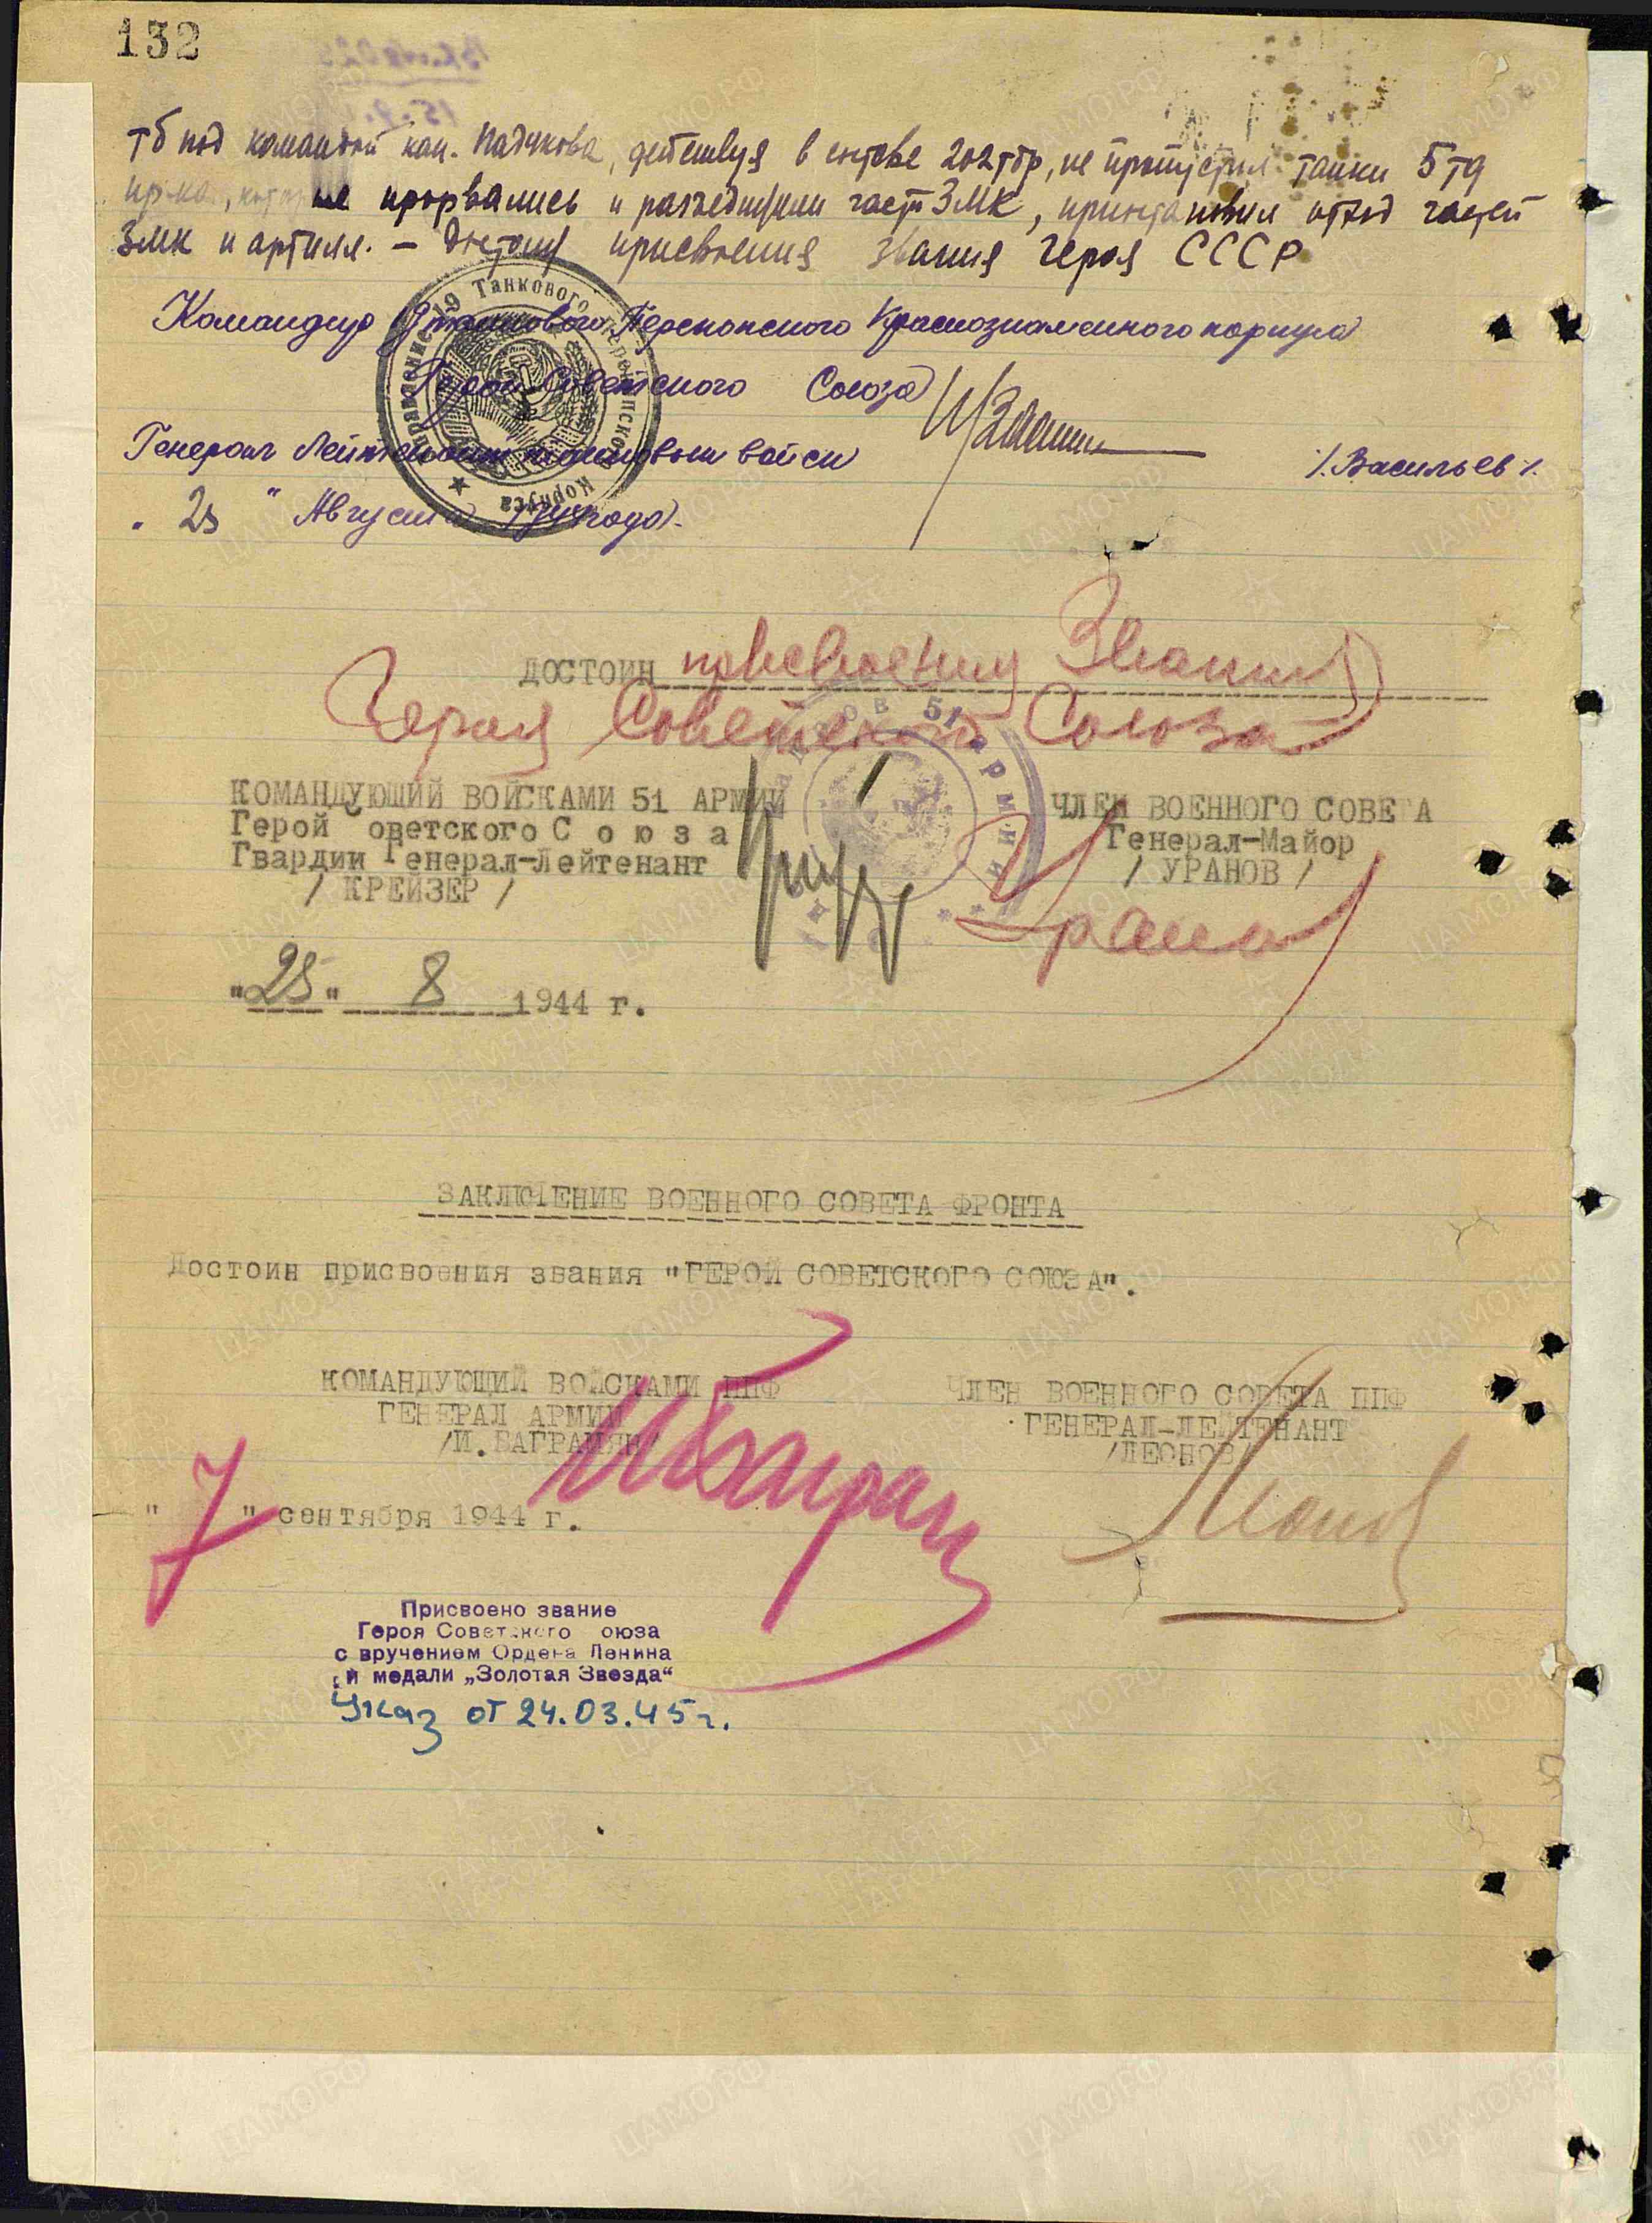 132
тб под командой кап. Падукова, действуя в составе 202 тбр, не пропустил танки 5 тд
пр-ка, которые прорвались и разъединили части 3МК, приостановил отход частей
3МК и артилл. – достоин присвоения звания героя СССР
Командир 19 танкового Перекопского Краснознаменного корпуса
Герой Советского Союза
Генерал Лейтенант танковых войск /Васильев/.
"25" Августа 1944 года.
Управление 19 Танкового Перекопского Корпуса
достоин присвоения Звания
Героя Советского Союза
КОМАНДУЮЩИЙ ВОЙСКАМИ 51 АРМИИ
Герой Советского С о ю з а
Гвардии Генерал-Лейтенант
/ КРЕЙЗЕР /
ЧЛЕН ВОЕННОГО СОВЕТА
Генерал-Майор
/ УРАНОВ /
"25" 8 1944 г.
ЗАКЛЮЧЕНИЕ ВОЕННОГО СОВЕТА ФРОНТА
Достоин присвоения звания "ГЕРОЙ СОВЕТСКОГО СОЮЗА".
КОМАНДУЮЩИЙ ВОЙСКАМИ ППФ
ГЕНЕРАЛ АРМИИ
/И. БАГРАМЯН/
ЧЛЕН ВОЕННОГО СОВЕТА ППФ
ГЕНЕРАЛ-ЛЕЙТЕНАНТ
/ЛЕОНОВ/
"7" сентября 1944 г.
Присвоено звание
Героя Советского оюза
с вручением Ордена Ленина
и медали „Золотая Звезда“
Указ от 24.03.45г.